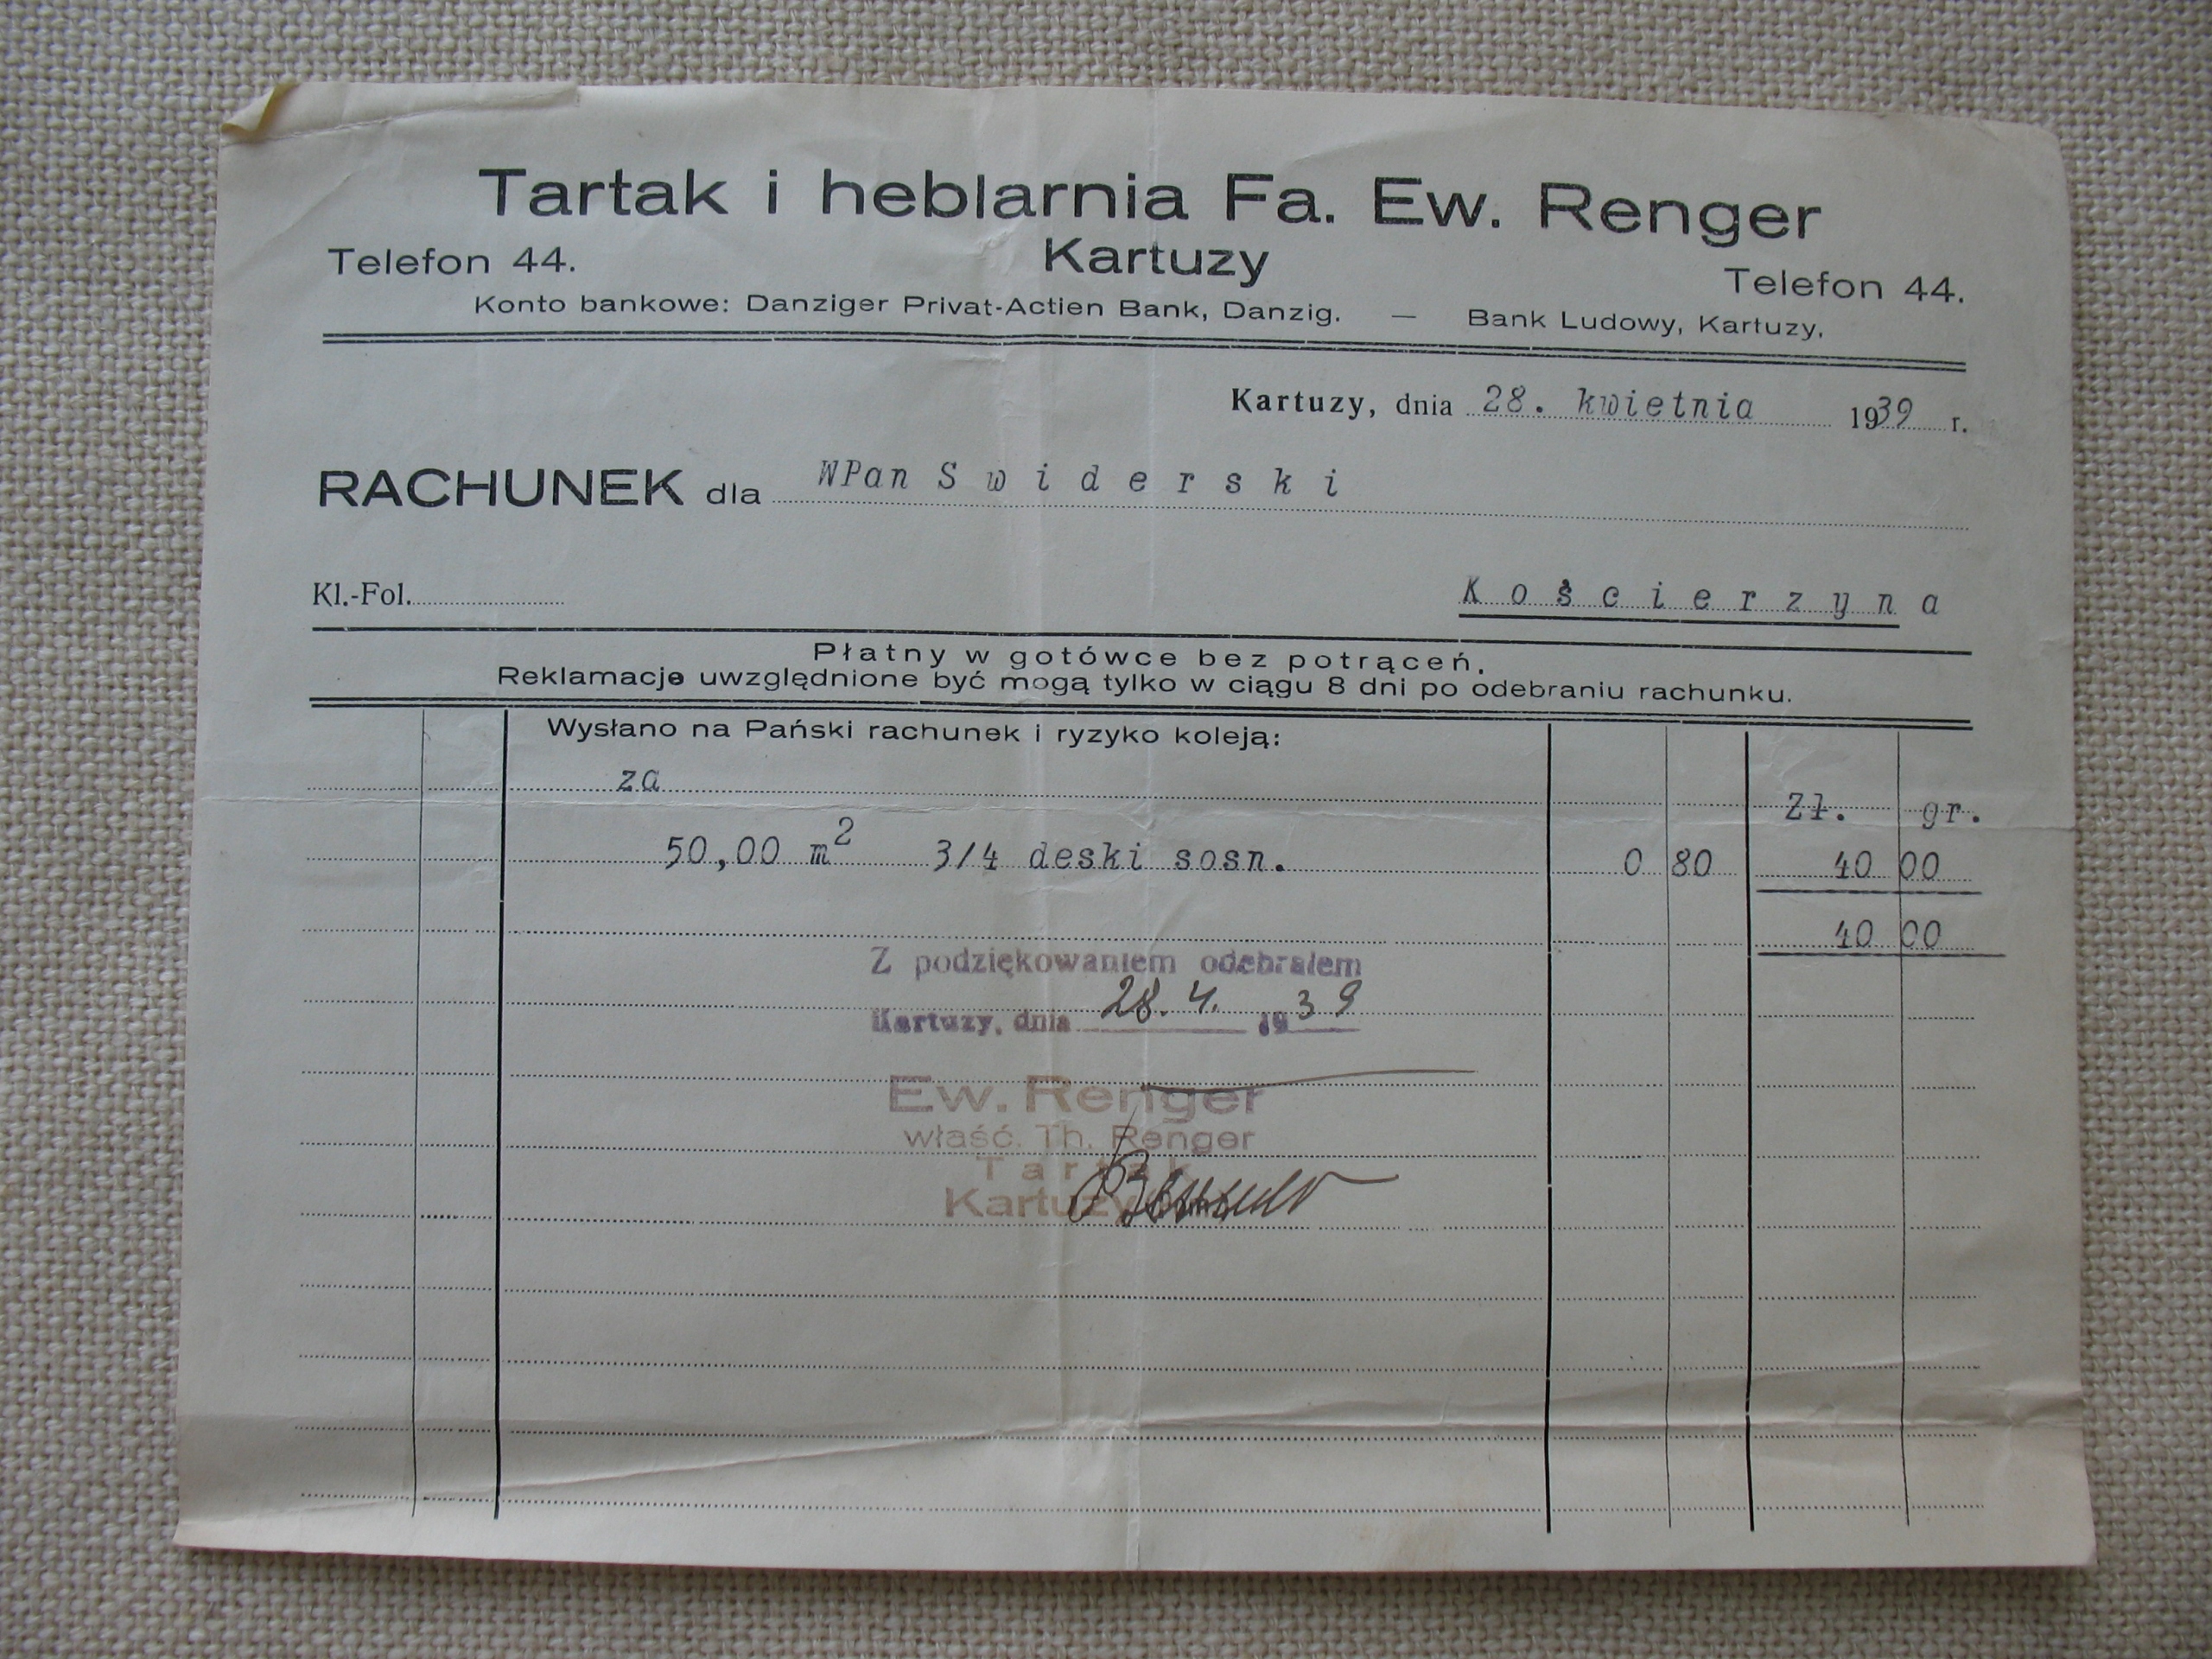 Tartak i heblarnia Fa. Ew. Renger
Telefon 44. Kartuzy Telefon 44.
Konto bankowe: Danziger Privat-Actien Bank, Danzig. — Bank Ludowy, Kartuzy.
Kartuzy, dnia 28. kwietnia 1939 r.
RACHUNEK dla WPan S w i d e r s k i
Kl.-Fol.
K o ś c i e r z y n a
Płatny w gotówce bez potrąceń.
Reklamacje uwzględnione być mogą tylko w ciągu 8 dni po odebraniu rachunku.
Wysłano na Pański rachunek i ryzyko koleją:
za
Zł. gr.
50,00 m² 3/4 deski sosn. 0 80 40 00
40 00
Z podziękowaniem odebrałem
Kartuzy, dnia 28. 4. 1939
Ew. Renger
właść. Th. Renger
Tartak
Kartuzy